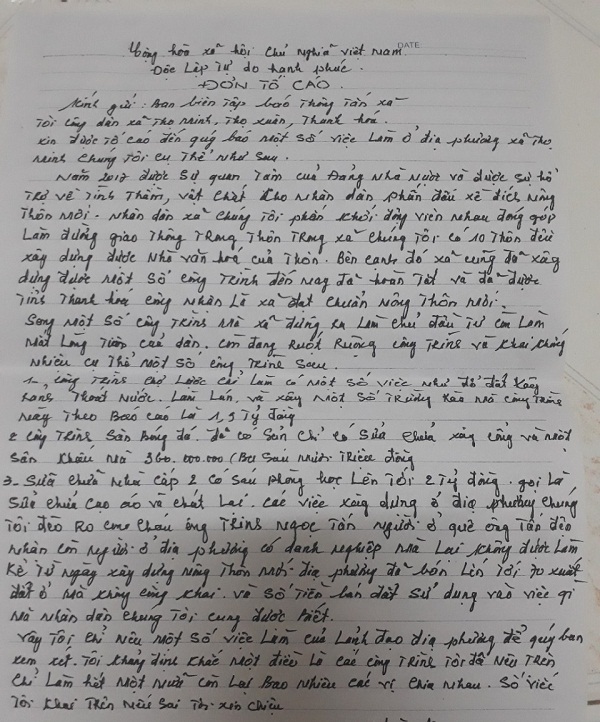 Cộng hòa xã hội chủ nghĩa việt Nam
DATE
Độc Lập Tự do hạnh phúc.
ĐƠN TỐ CÁO.
Kính gửi: Ban biên Tập báo Thông Tấn xã
Tôi công dân xã Thọ Minh, Thọ xuân, Thanh hoá.
xin được Tố cáo đến quý báo Một số việc Làm ở địa phương xã Thọ
Minh chúng Tôi cụ Thể như sau.
Năm 2017 được sự quan Tâm của Đảng Nhà Nước và được sự hỗ
Trợ về Tinh Thần, vật chất cho nhân dân phấn đấu về đích nông
Thôn mới. Nhân dân xã chúng Tôi phấn khởi động viên nhau đóng góp
Làm đường giao Thông TRong Thôn TRong xã chúng Tôi có 10 Thôn đều
xây dựng được Nhà văn hoá của Thôn. Bên cạnh đó xã cũng đã xây
dựng được một số công TRình đến nay đã hoàn Tất và đã được
Tỉnh Thanh hoá công Nhận Là xã đạt chuẩn Nông Thôn Mới.
Song Một số công TRình Mà xã đứng ra Làm chủ đầu Tư còn Làm
Mất Lòng Tin của dân. còn đang Ruột Ruỗng công TRình và khai khống
Nhiều cụ Thể Một số công TRình sau.
1, công TRình chợ Lược chỉ Làm có Một số việc như đổ đất xây
Thoát Nước. Làm Lán, và xây Một số Mà công TRình
này Theo Báo cáo Là 1,3 Tỷ đồng
2 công TRình Sân Bóng đá. đã có sẵn chỉ có sửa chữa xây cổng và Một
Sân khấu Mà 360.000.000 (Ba Sáu Mươi TRiệu đồng
3. Sửa chữa Nhà cấp 2 có sáu phòng học Lên Tới 2 Tỷ đồng. gọi Là
sửa chữa cạo áo và chát Lại. các việc xây dựng ở địa phương chúng
Tôi đều Do con cháu ông TRịnh Ngọc Tân người ở quê ông Tân
nhân còn người ở địa phương có danh nghiệp Mà Lại không được Làm
Kể Từ ngày xây dựng nông Thôn Mới địa phương đã bán Lên Tới 70 xuất
đất ở Mà không công khai. và số Tiền bán đất sử dụng vào việc gì
Mà nhân dân chúng Tôi cũng được Biết.
Vậy Tôi chỉ Nêu Một số việc Làm của Lãnh đạo địa phương để quý ban
xem xét. Tôi khẳng định chắc Một điều Là các công TRình Tôi đã Nêu TRên
chỉ Làm hết Một Nửa còn Lại Bao nhiêu các vị chia nhau. Số việc
Tôi khai TRên Nếu Sai Tôi xin chịu